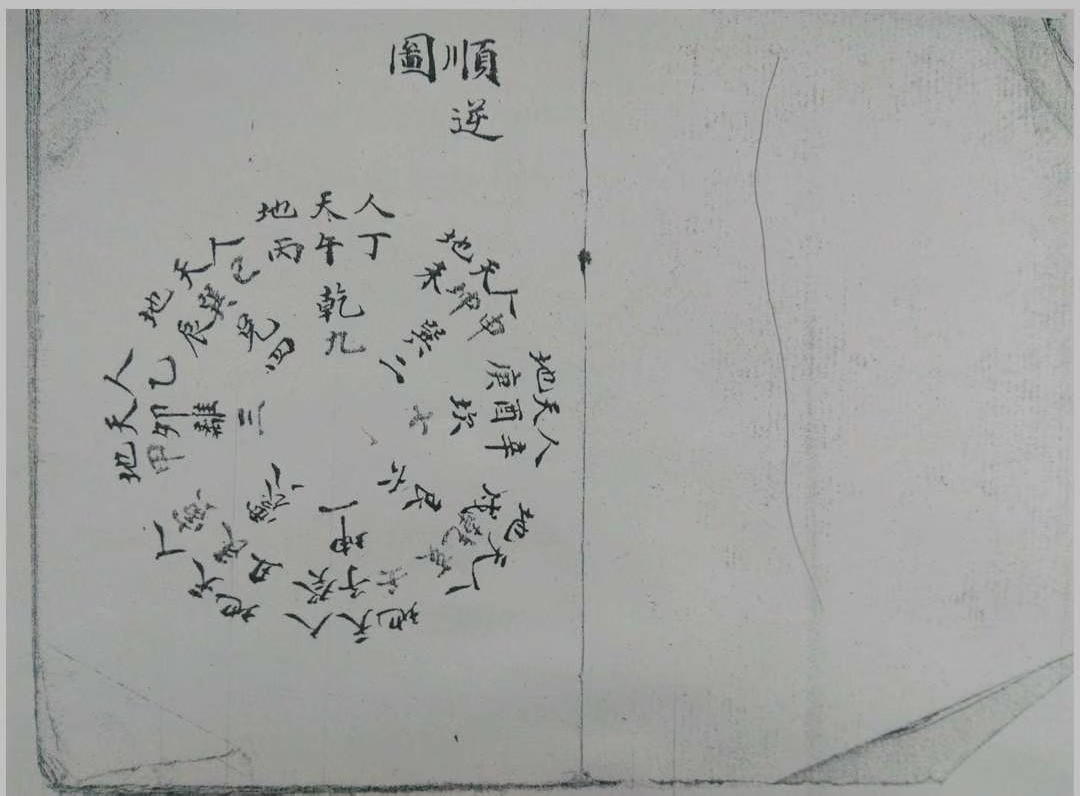 順逆圖
地天人
丙午丁
乾
九
地天人
未坤申
巽
二
地天人
庚酉辛
坎
七
地天人
戌乾亥
艮
六
地天人
壬子癸
坤
一
地天人
丑艮寅
震
八
地天人
甲卯乙
離
三
地天人
辰巽巳
兌
四